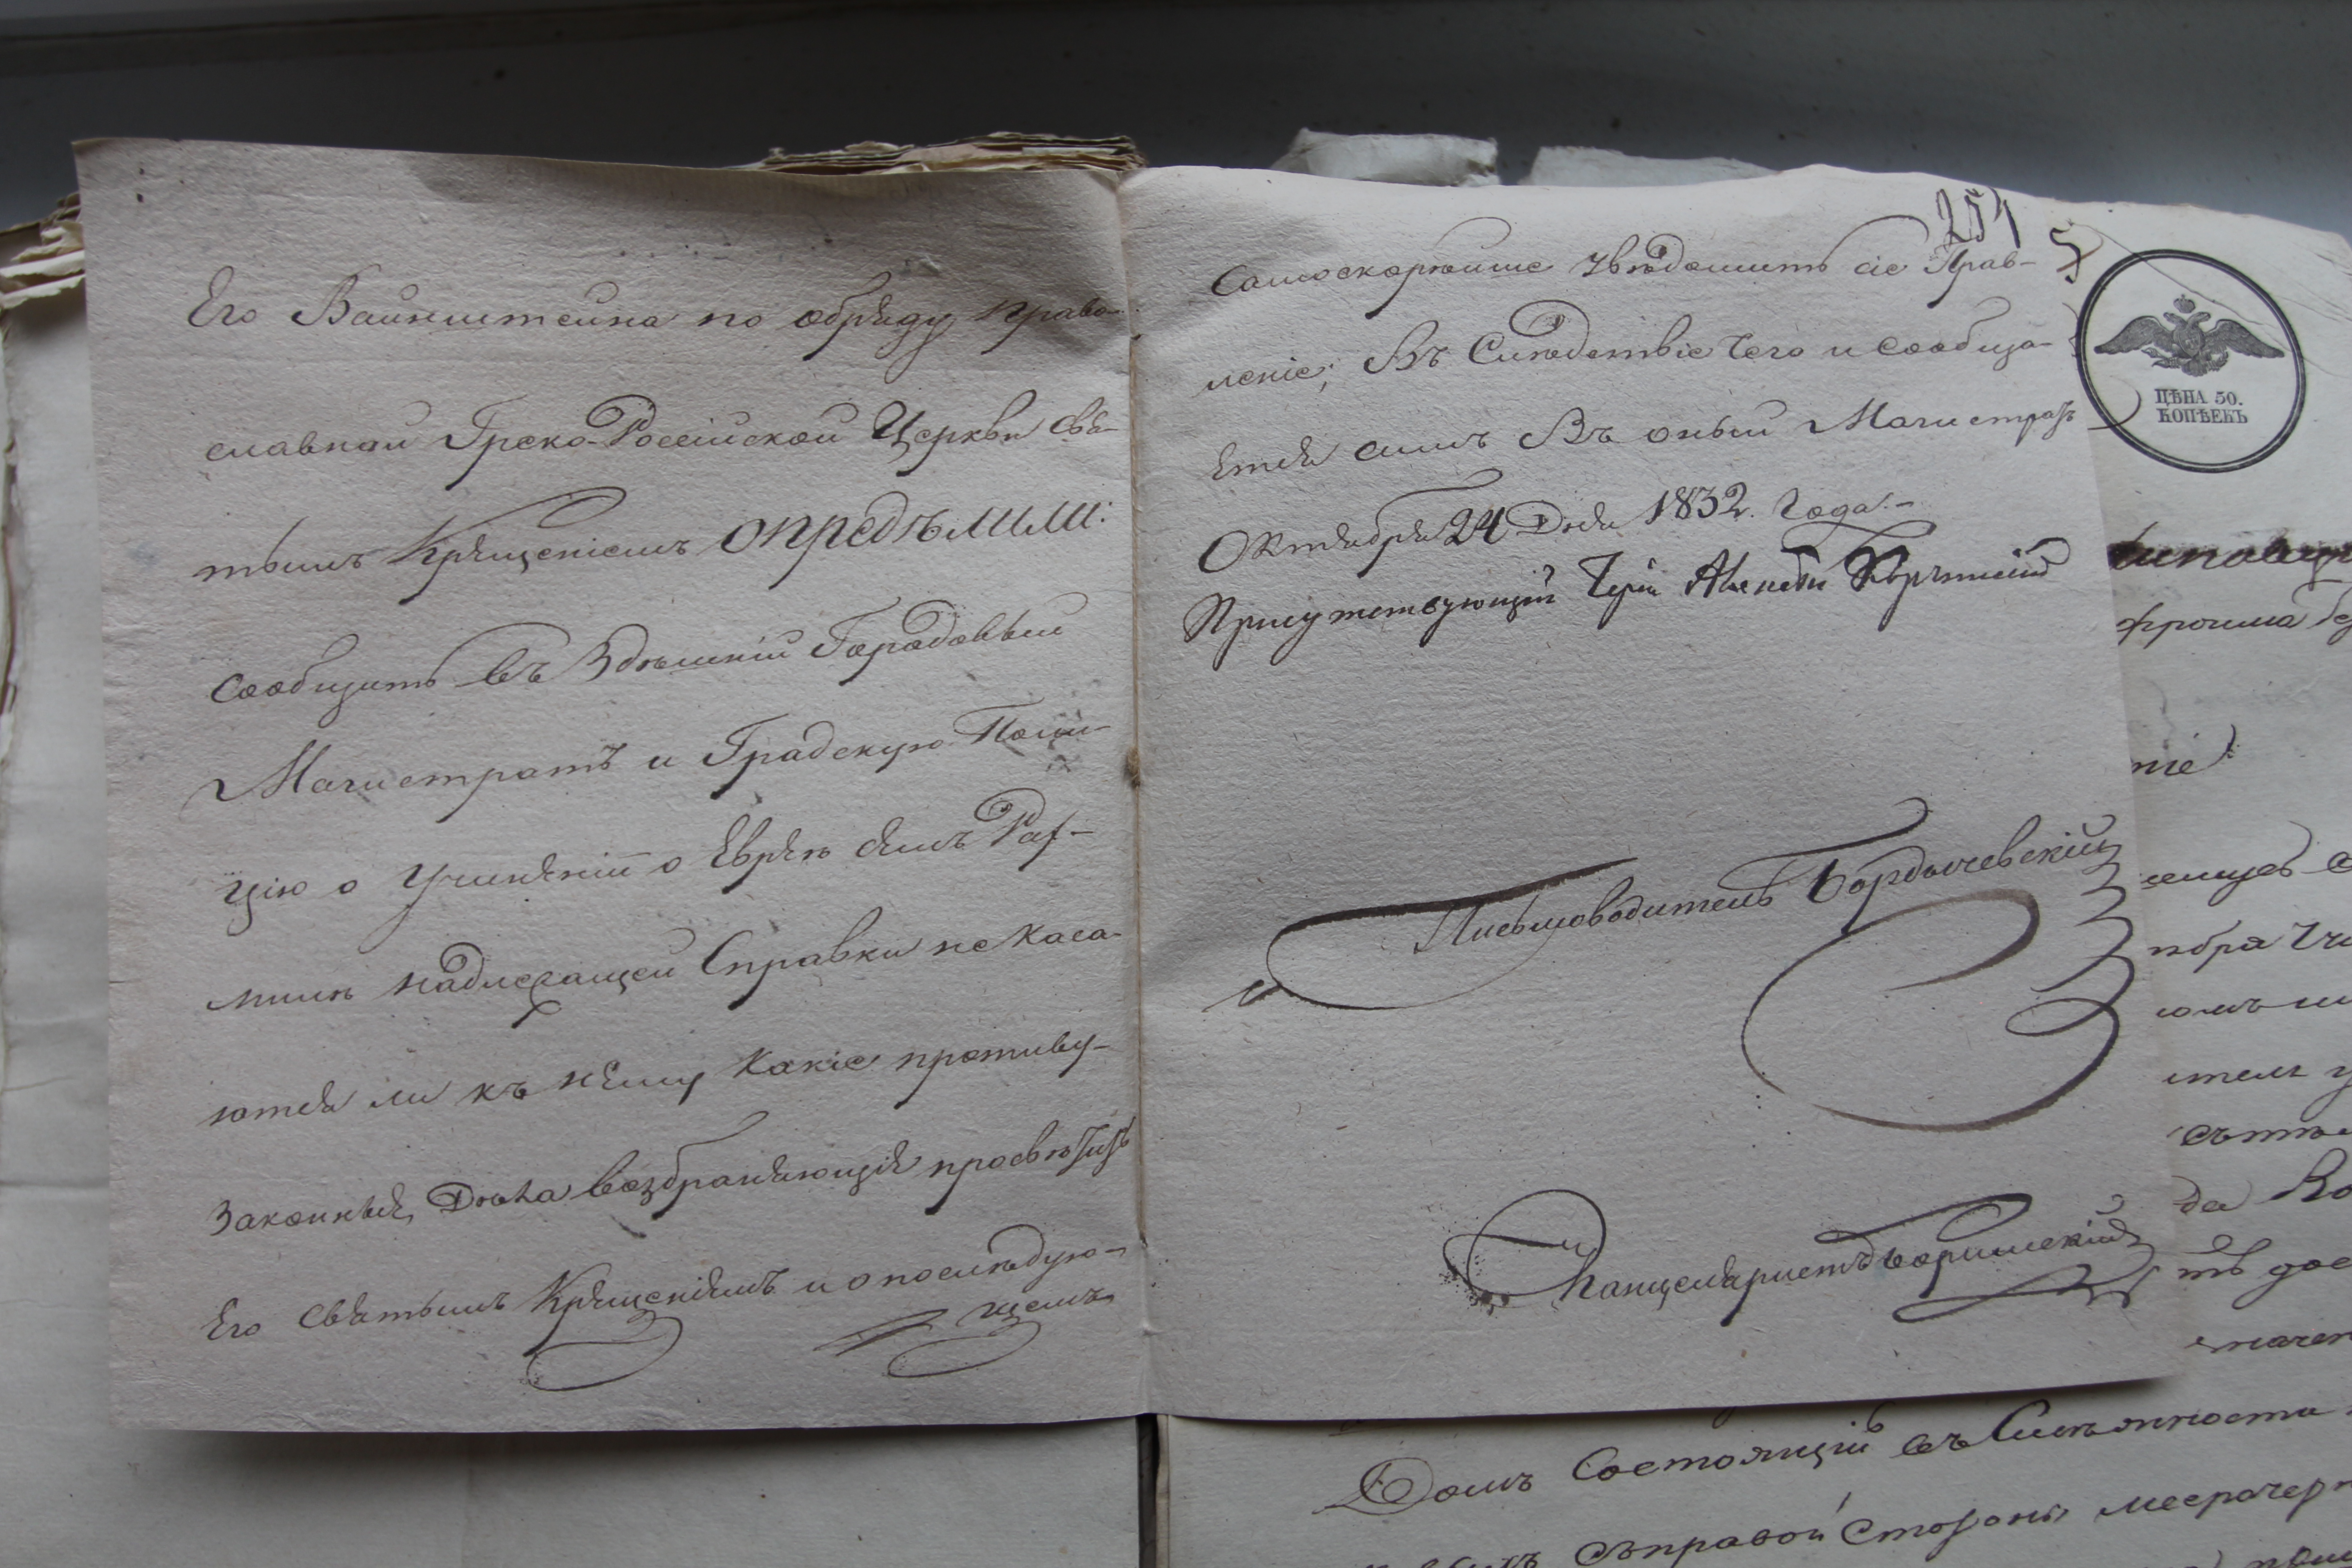 Его Вайнштейна по обряду право-
славной Греко-Россійской Церкви свя-
тымъ Крященіемъ опредѣлили:
сообщить въ Здѣшній Городовый
Магистратъ и Градскую Поли-
цію о Учиненіи о Еврѣе семъ Раз-
мили надлежащей Справки не Каса-
ются ли къ нему Какіе противу-
Законныя Дѣла возбраняющія просвѣтить
Его Святымъ Крященіямъ и о послѣдую-
щемъ
254
Самоскорѣйше увѣдомить сіе Прав-
леніе; Въ Слѣдствіе Чего и Сообща-
Ется симъ Въ оный Магистратъ
Октября 24 Дня 1832. Года.-
Присутствующій Іерей
Письмоводитель Бордычевскій
Канцеляристъ
ЦѢНА 50.
КОПѢЕКЪ
Домъ Состоящій въ
съправой Стороны